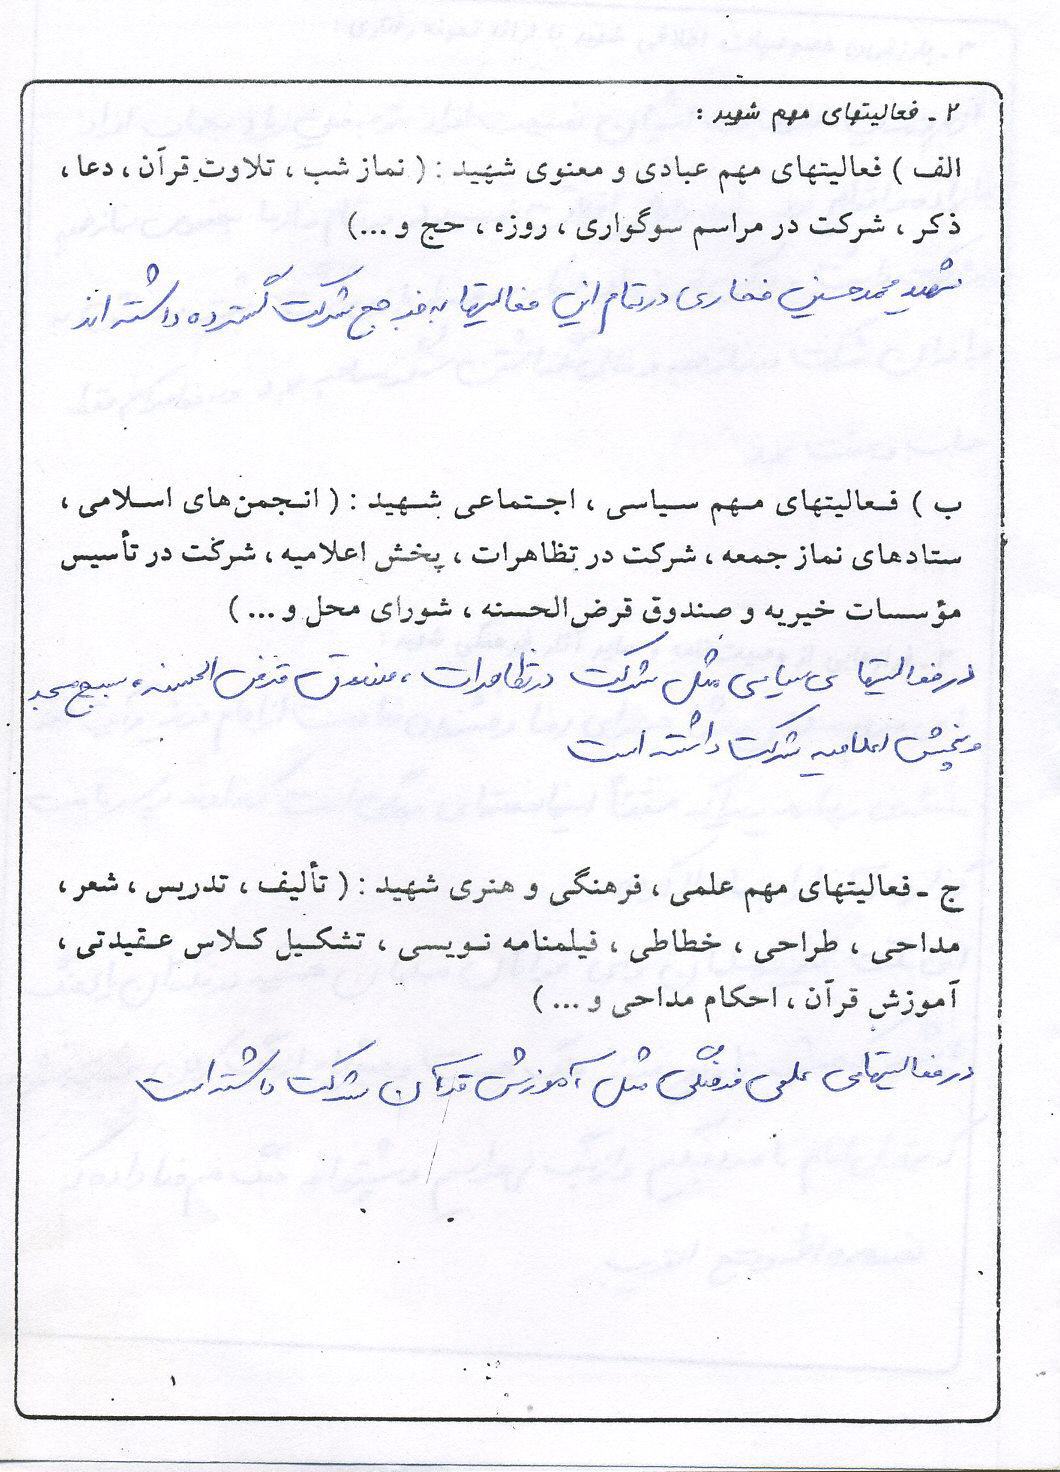 ۲ ـ فعالیتهای مهم شهید :
الف ) فعالیتهای مهم عبادی و معنوی شهید : ( نماز شب ، تلاوت قرآن ، دعا ،
ذکر ، شرکت در مراسم سوگواری ، روزه ، حج و ...)
شهید محمدحسین فخاری در تمام این فعالیتها به جز حج شرکت گسترده داشته اند
ب ) فعالیتهای مهم سیاسی ، اجتماعی شهید : ( انجمن‌های اسلامی ،
ستادهای نماز جمعه ، شرکت در تظاهرات ، پخش اعلامیه ، شرکت در تأسیس
مؤسسات خیریه و صندوق قرض‌الحسنه ، شورای محل و ... )
در فعالیتهای سیاسی مثل شرکت در تظاهرات ، صندوق قرض الحسنه ، بسیج مسجد
و پخش اعلامیه شرکت داشته است
ج ـ فعالیتهای مهم علمی ، فرهنگی و هنری شهید : ( تألیف ، تدریس ، شعر ،
مداحی ، طراحی ، خطاطی ، فیلمنامه نویسی ، تشکیل کلاس عقیدتی ،
آموزش قرآن ، احکام مداحی و ... )
در فعالیتهای علمی فرهنگی مثل آموزش قرآن شرکت داشته است
۱